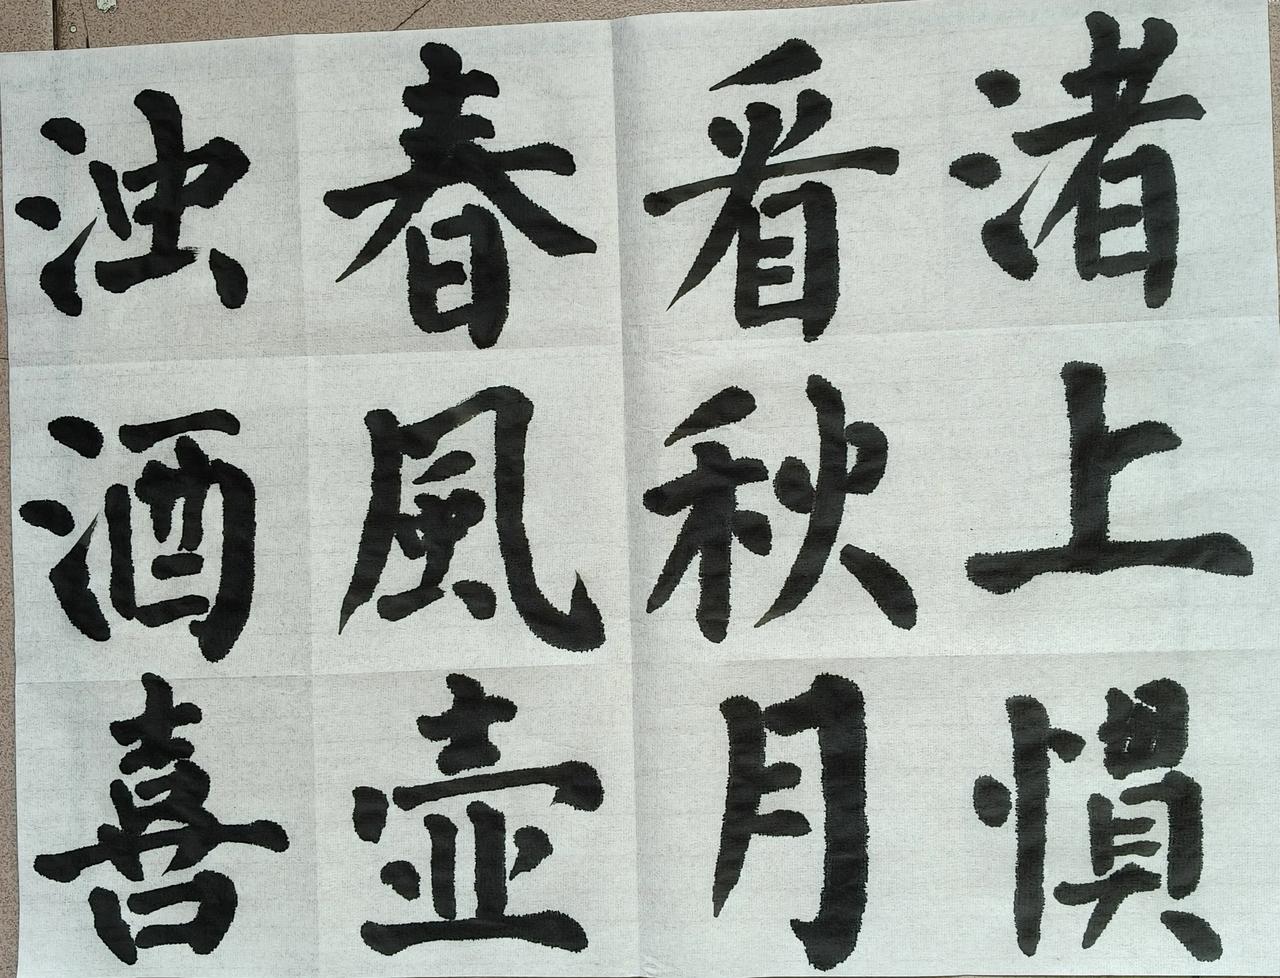 渚上慣
看秋月
春風壺
浊酒喜